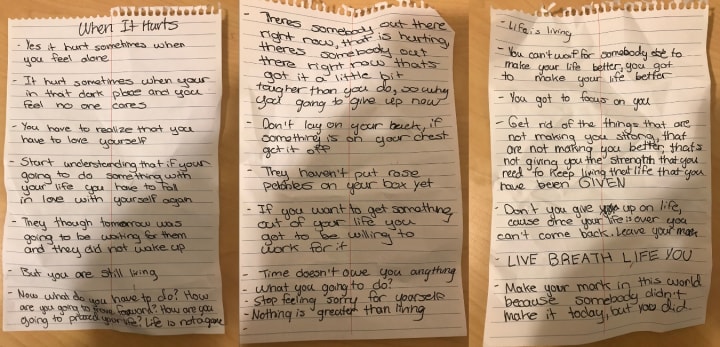 When It Hurts
- Yes it hurt sometimes when
you feel alone
- It hurt sometimes when your
in that dark place and you
feel no one cares
- You have to realize that you
have to love yourself
- Start understanding that if your
going to do something with
your life you have to fall
in love with yourself again
- They though tomorrow was
going to be waiting for them
and they did not wake up
- But you are still living
- Now what do you have to do? How
are you going to move forward? How are you
going to proceed your life? Life is not a game
- Theres somebody out there
right now, that is hurting,
theres somebody out
there right now thats
got it a little bit
tougher than you do, so why
you going to give up now
- Don't lay on your back, if
something is on your chest
get it off
- They haven't put rose
pebbles on your box yet
- If you want to get something
out of your life you
got to be willing to
work for it
- Time doesn't owe you anything
what you going to do?
- Stop feeling sorry for yourself
- Nothing is greater than living
-
- Life is living
- You can't wait for somebody else to
make your life better, you got
to make your life better
- You got to focus on you
- Get rid of the things that are
not making you strong, that
are not making you better, thats
not giving you the strength that you
need to keep living that life that you
have been GIVEN
- Don't you give up on life,
cause once your life is over you
can't come back. Leave your mark
- LIVE BREATH LIFE YOU
- Make your mark in this world
because somebody didn't
make it today, but you did.